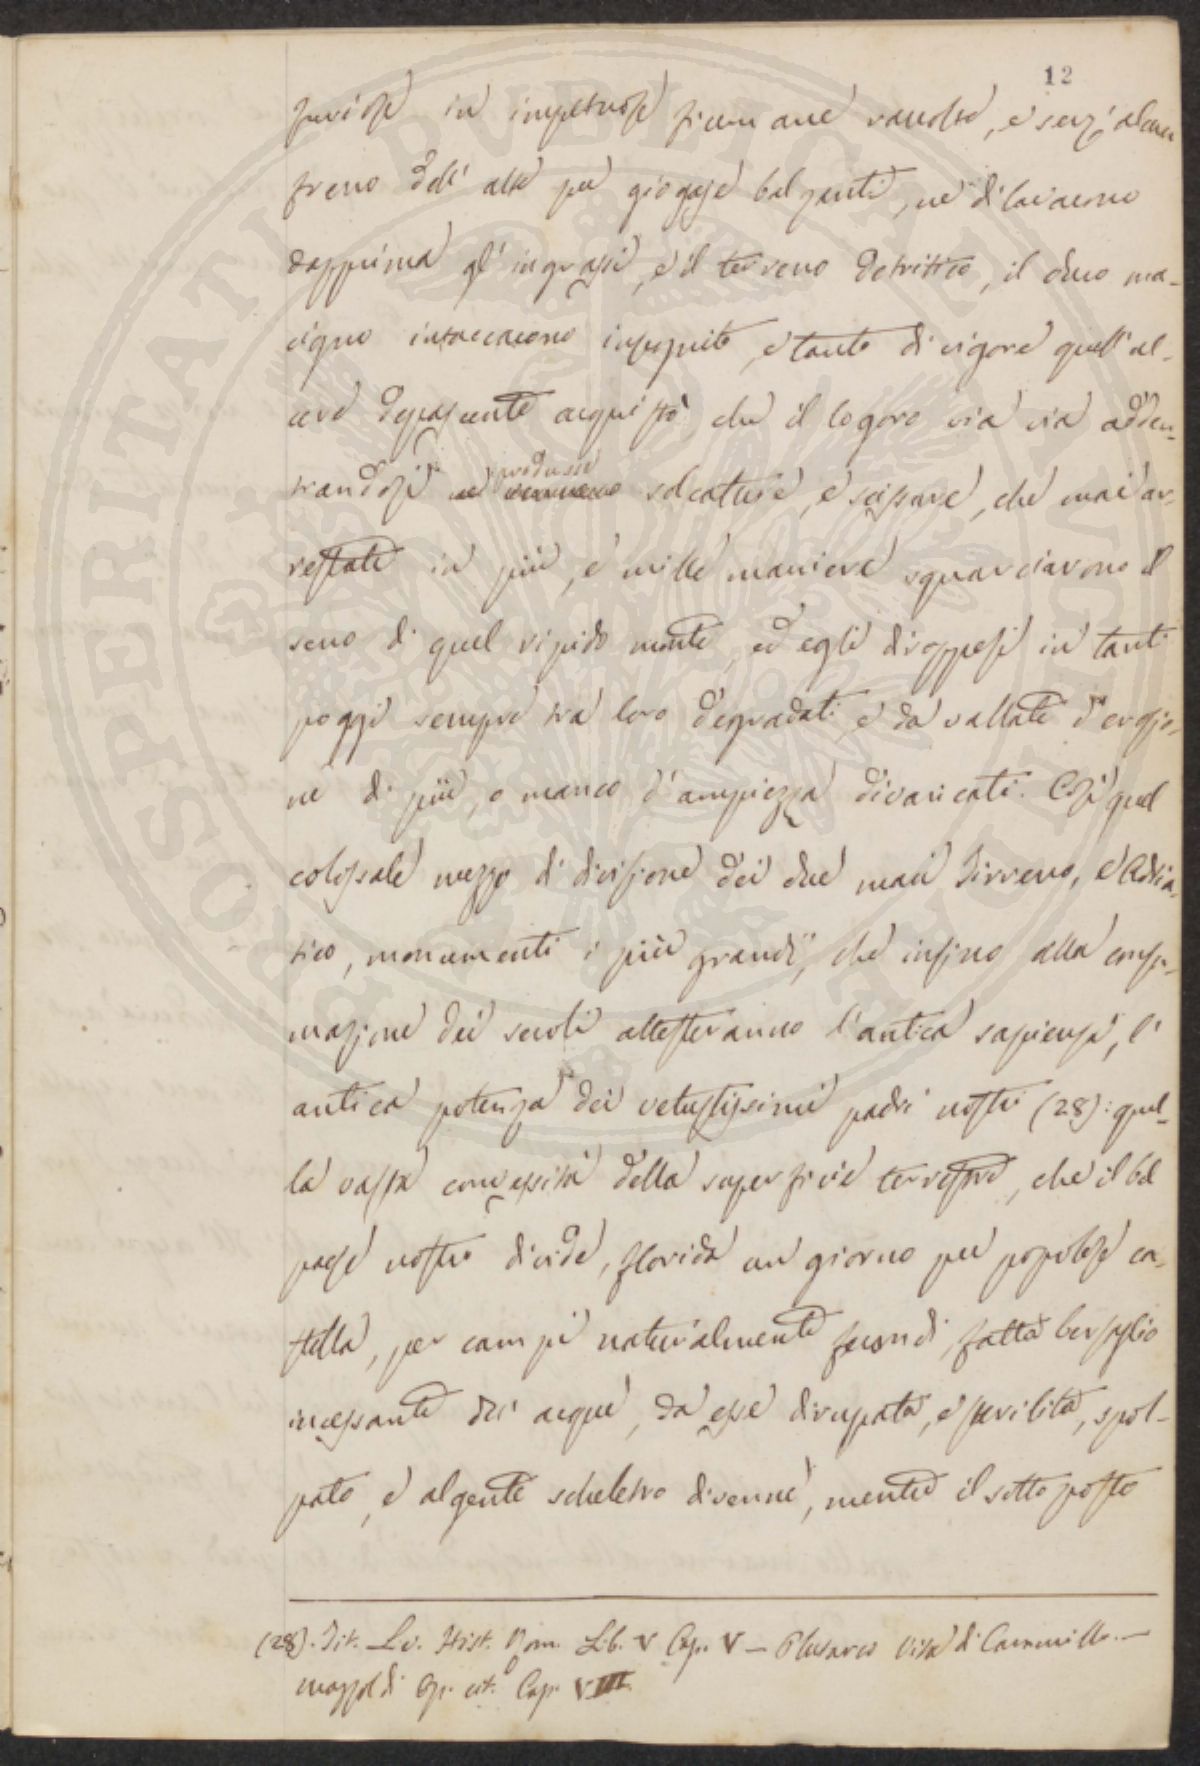 12
furiose in impetuose fiumane raccolte, e senz'alcun
freno dell'alte per giogaje balzanti, ne dilavarono
dapprima gl'ingrassi, e il terreno detritico, il duro ma-
cigno intaccarono in seguito, e tanto di vigore quell'al-
vere depascente acquistò, che il logoro via via adden-
trandosi ne produsse solcature, e scissure, che mai ar-
restate in più, e mille maniere squarciarono il
seno di quel ripido monte, ed egli diroppesi in tanti
poggi sempre tra loro degradati, e da vallate d'erosio-
ne di più, o manco d'ampiezza divaricati. Così quel
colossale mezzo di divisione dei due mari Tirreno, e Adria-
tico, monumenti i più grandi, che insino alla consu-
mazione dei secoli attesteranno l'antica sapienza, l'
antica potenza dei vetustissimi padri nostri (28): quel-
la vasta convessità della superficie terrestre, che il bel
paese nostro divide, florida un giorno per popolose ca-
stella, per campi naturalmente fecondi, fatta bersaglio
incessante dell'acque, da esse dirupata, e sterilita, spol-
pato, e algente scheletro divenne, mentre il sottoposto
(28). Tit. Liv. Hist. Rom. Lib. V Cap. V — Plutarco Vita di Cammillo. —
Mazzoldi Op. cit. Cap. VIII
PROSPERITATI PUBLICAE AUGENDAE